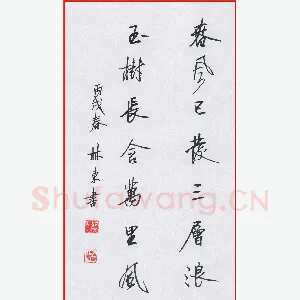 春风已发三层浪
玉樹長含萬里風
丙戌春 林东書
Shufawang.CN